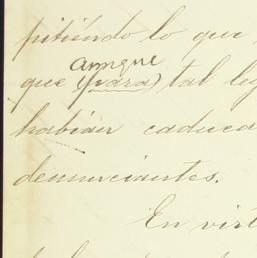 pitiéndo lo que
aunque
que (para) tal le
habian caduca
denunciantes.
En virt